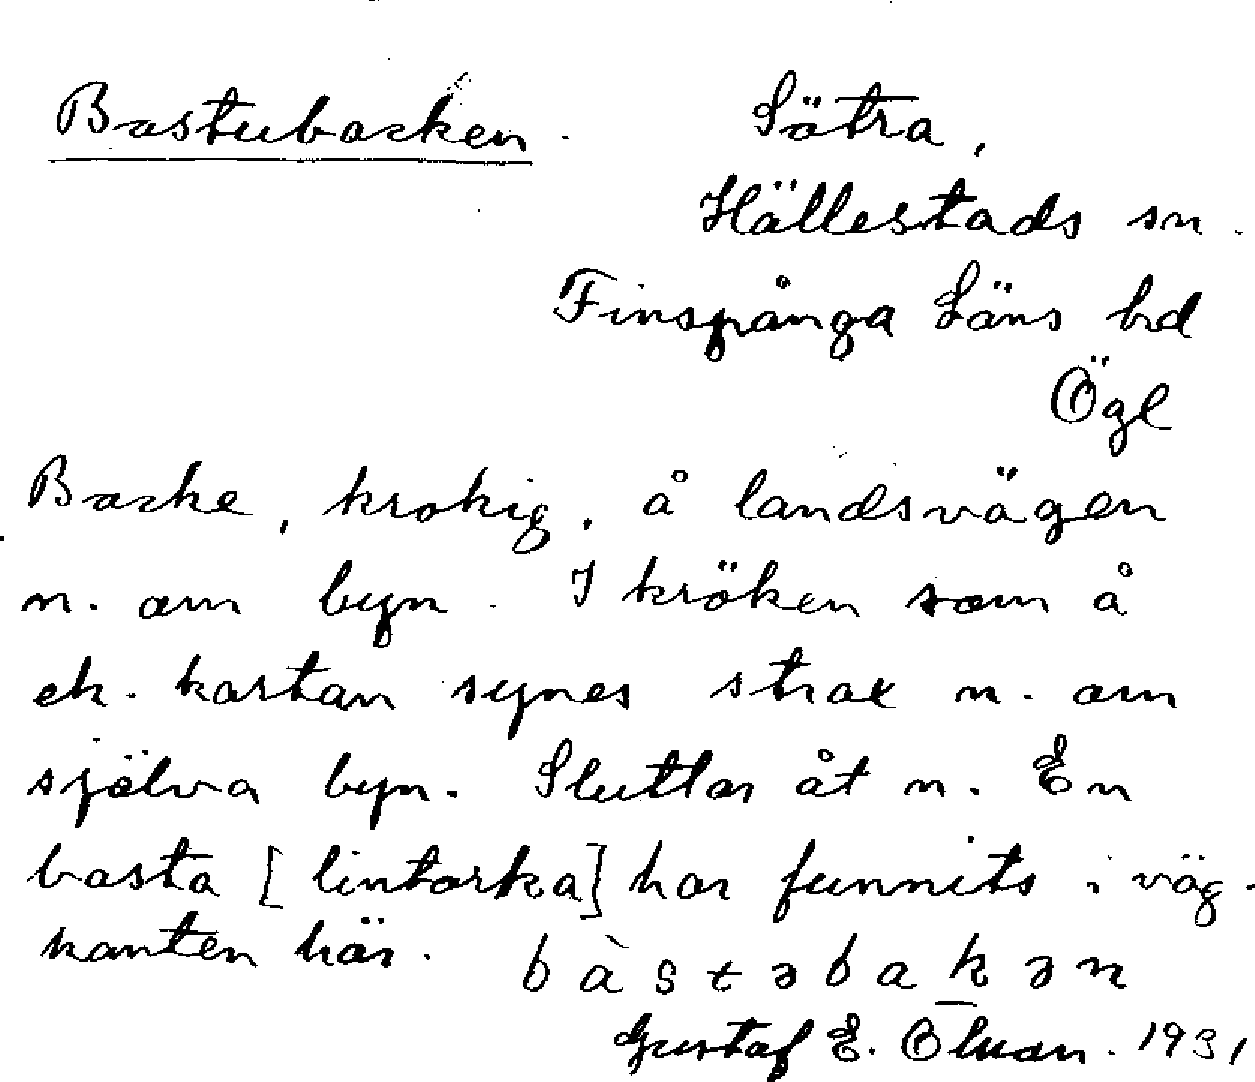 Bastubacken. Sätra,
Hällestads sn.
Finspånga Läns hd
Ögl
Backe, krokig, å landsvägen
n. om byn. I kröken som å
ek. kartan synes strax n. om
själva byn. Sluttar åt n. En
basta [lintorka] har funnits i väg-
kanten här. bàstəbak̲ən
Gustaf E. Öman. 1931